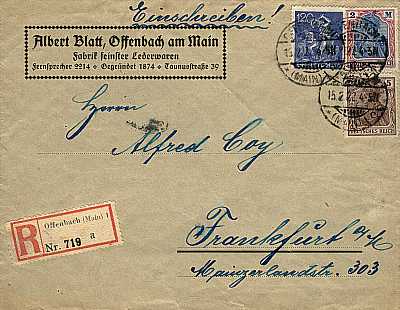 Einschreiben!
Albert Blatt, Offenbach am Main
Fabrik feinster Lederwaren
Fernsprecher 2214 + Gegründet 1874 + Taunusstraße 39
120
2 M
(MAIN)
15.2.22. 4-5N
DEUTSCHES REICH
(MAIN)
Herrn
Alfred Coy
R
Offenbach (Main) 1
Nr. 719 a
Frankfurt a/M
Mainzerlandstr. 303